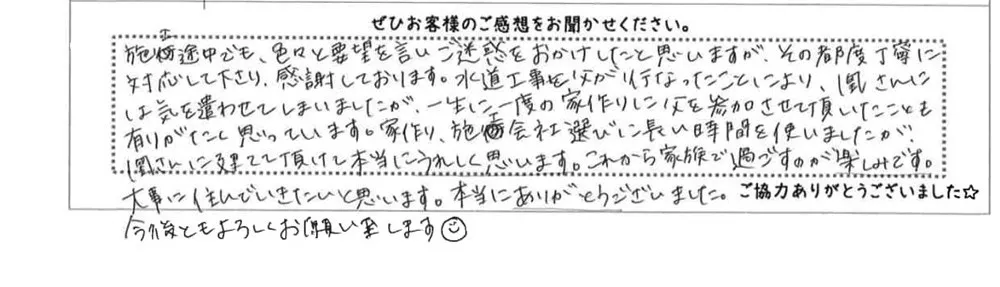 ぜひお客様のご感想をお聞かせください。
施工途中でも、色々と要望を言いご迷惑をおかけしたと思いますが、その都度丁寧に
対応して下さり、感謝しております。水道工事を父が行なったことにより、凰さんに
は気を遣わせてしまいましたが、一生に一度の家作りに父を参加させて頂いたことも
有りがたく思っています。家作り、施工会社選びに長い時間を使いましたが、
凰さんに建てて頂けて本当にうれしく思います。これから家族で過ごすのが楽しみです。
大事に住んでいきたいと思います。本当にありがとうございました。 ご協力ありがとうございました☆
今後ともよろしくお願い致します☺